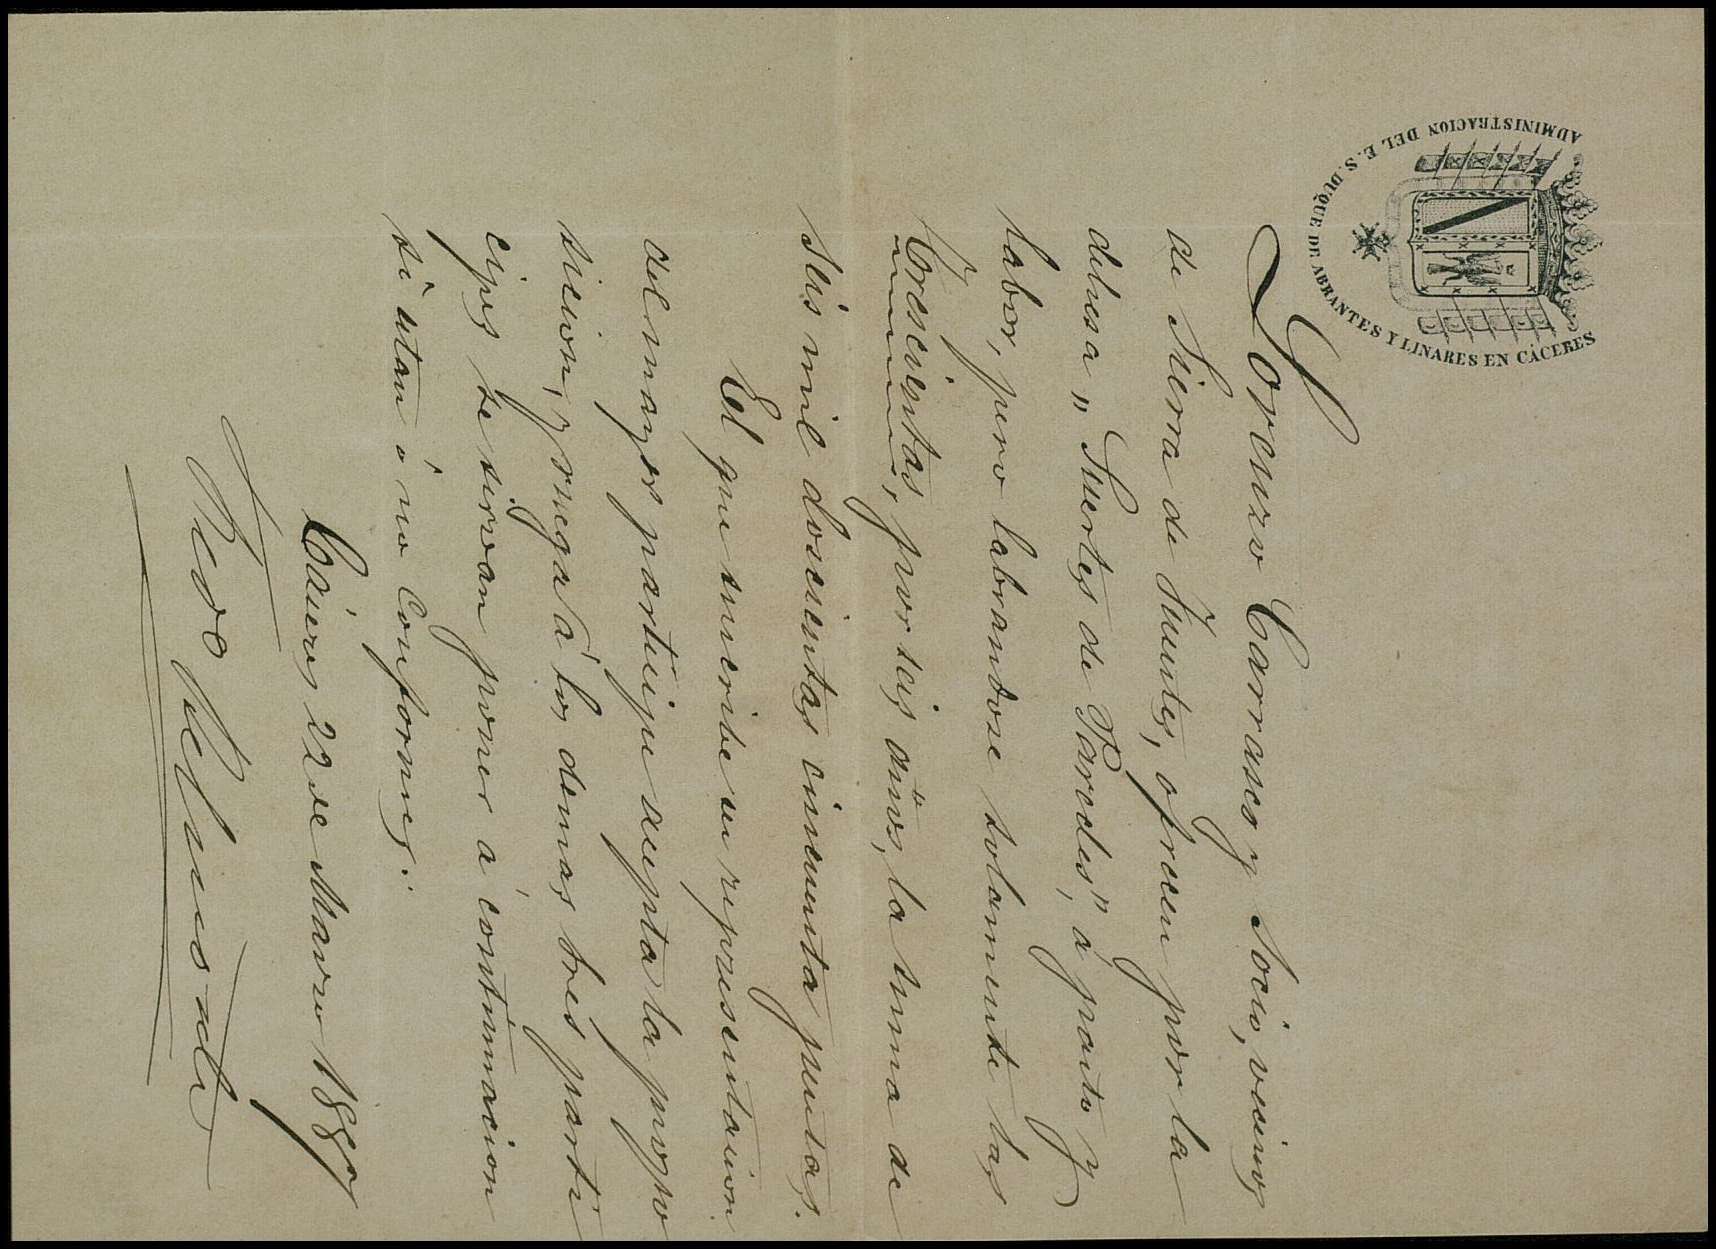 ADMINISTRACION DEL E. S. DUQUE DE ABRANTES Y LINARES EN CÁCERES
Lorenzo Carrasco y Socio, vecinos
de Sierra de Fuentes, ofrecen por la
dehesa „Suertes de Paredes", á pasto y
labor, pero labrandose solamente las
Crescientas, por seis años, la suma de
seis mil doscientas cincuenta pesetas.
El que suscribe en representacion
del mayor participe acepta la propo
sicion, y ruega á los demas tres parti
cipes se sirvan poner á continuacion
si estan ó no conformes.
Cáceres 22 de Marzo 1889